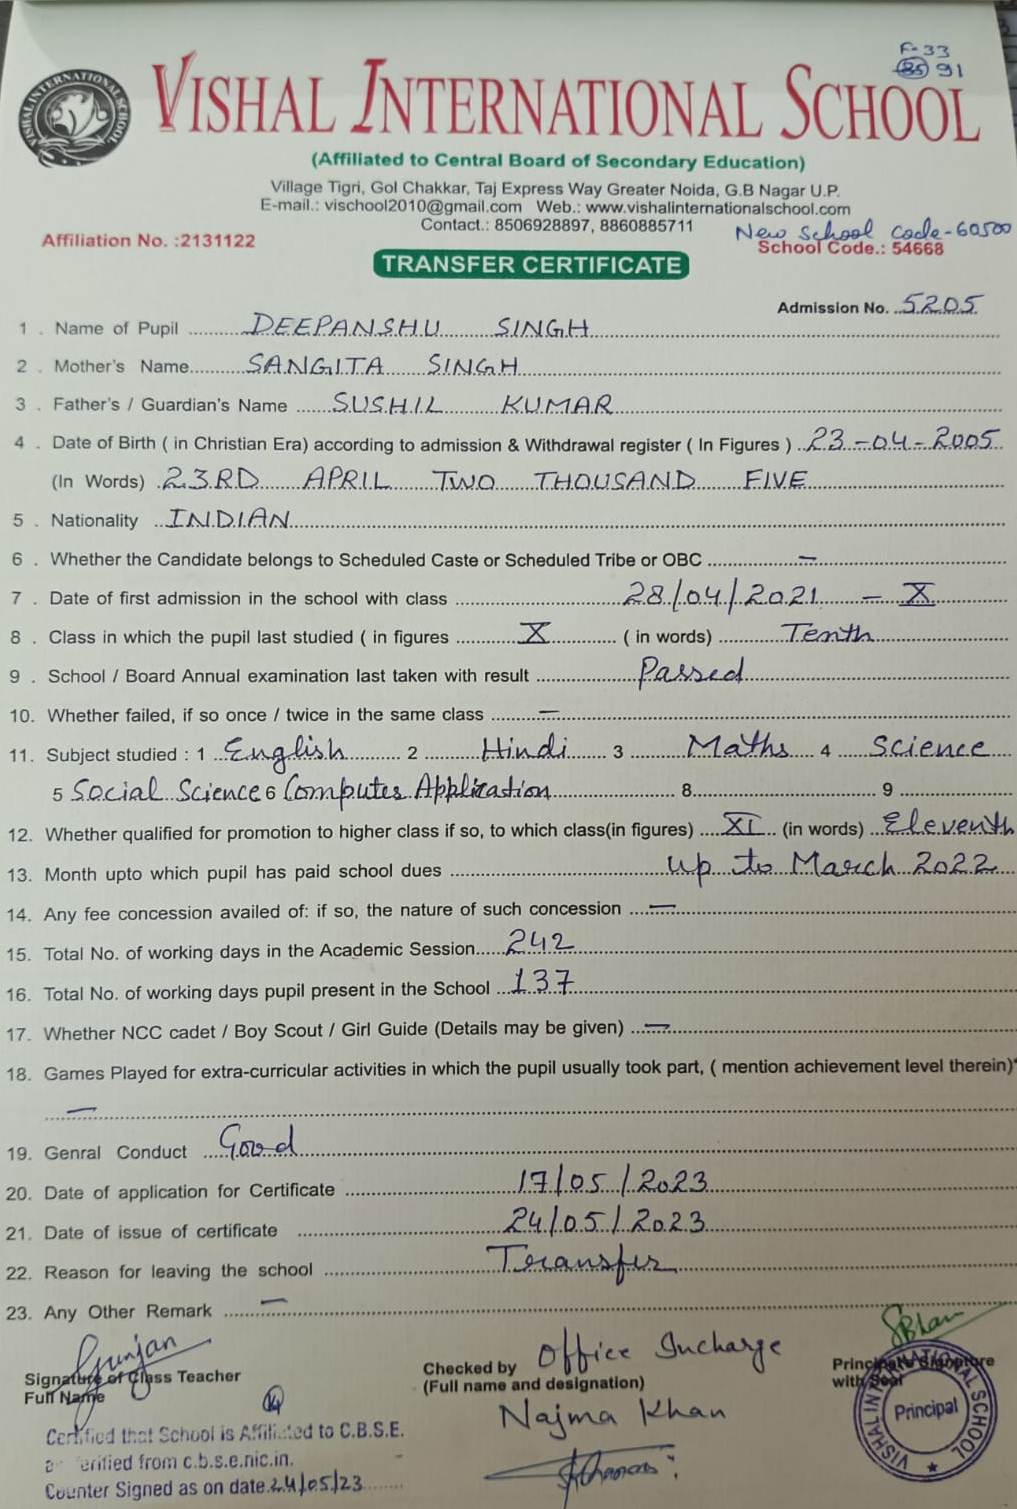 F-33
85 91
VISHAL INTERNATIONAL SCHOOL
(Affiliated to Central Board of Secondary Education)
Village Tigri, Gol Chakkar, Taj Express Way Greater Noida, G.B Nagar U.P.
E-mail.: vischool2010@gmail.com Web.: www.vishalinternationalschool.com
Contact.: 8506928897, 8860885711
New School Code-60500
Affiliation No. :2131122 School Code.: 54668
TRANSFER CERTIFICATE
Admission No. 5205
1 . Name of Pupil DEEPANSHU SINGH
2 . Mother's Name SANGITA SINGH
3 . Father's / Guardian's Name SUSHIL KUMAR
4 . Date of Birth ( in Christian Era) according to admission & Withdrawal register ( In Figures ) 23-04-2005
(In Words) 23RD APRIL TWO THOUSAND FIVE
5 . Nationality INDIAN
6 . Whether the Candidate belongs to Scheduled Caste or Scheduled Tribe or OBC —
7 . Date of first admission in the school with class 28/04/2021 — X
8 . Class in which the pupil last studied ( in figures X ( in words) Tenth
9 . School / Board Annual examination last taken with result Passed
10. Whether failed, if so once / twice in the same class —
11. Subject studied : 1 English 2 Hindi 3 Maths 4 Science
5 Social Science 6 Computer Application 8 9
12. Whether qualified for promotion to higher class if so, to which class(in figures) XI (in words) Eleventh
13. Month upto which pupil has paid school dues up to March 2022
14. Any fee concession availed of: if so, the nature of such concession —
15. Total No. of working days in the Academic Session 242
16. Total No. of working days pupil present in the School 137
17. Whether NCC cadet / Boy Scout / Girl Guide (Details may be given) —
18. Games Played for extra-curricular activities in which the pupil usually took part, ( mention achievement level therein)*
—
19. Genral Conduct Good
20. Date of application for Certificate 17/05/2023
21. Date of issue of certificate 24/05/2023
22. Reason for leaving the school Transfer
23. Any Other Remark —
Gunjan
Signature of Class Teacher
Full Name
Checked by Office Incharge
(Full name and designation)
Najma Khan
Principal's Signature
with Seal
VISHAL INTERNATIONAL SCHOOL
Principal
Certified that School is Affiliated to C.B.S.E.
verified from c.b.s.e.nic.in.
Counter Signed as on date 24/05/23